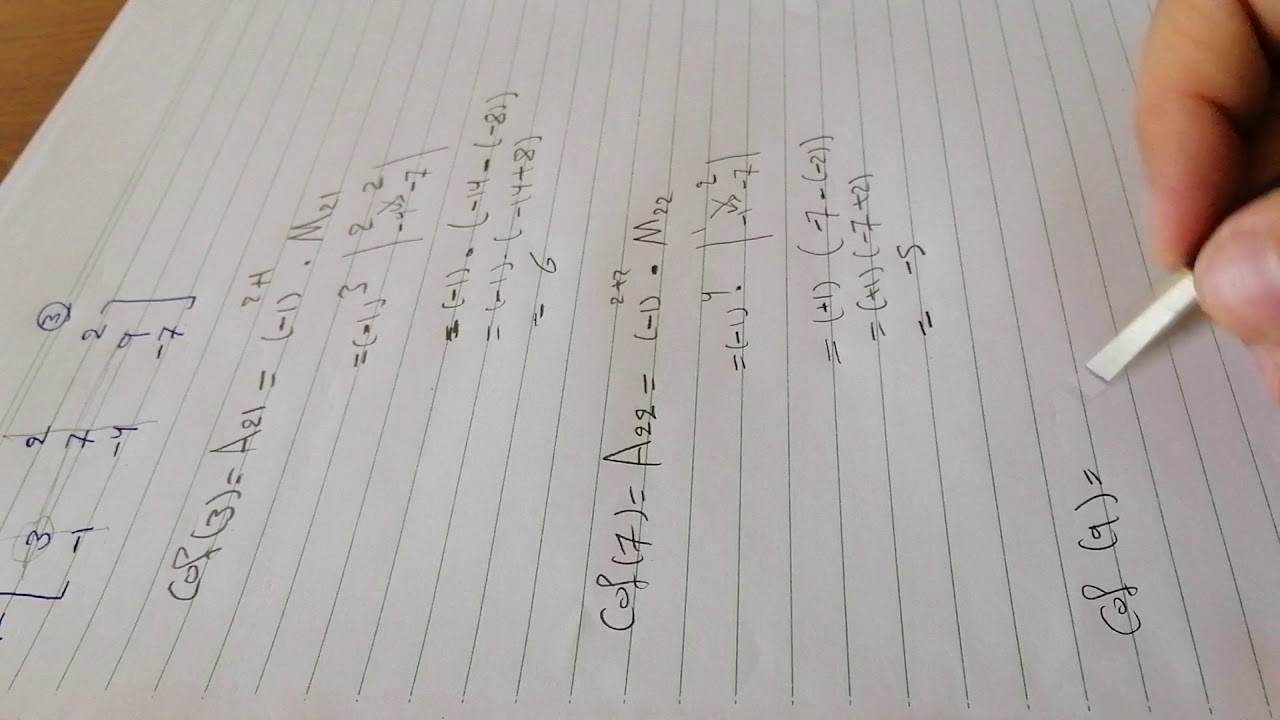 ③
2 2
3 7 9
-1 -4 -7
Cof(3) = A21 = (-1)^2+1 . M21
= (-1)^3 | 2 2 |
| -4 -7 |
= (-1) • (-14 - (-8))
= (-1) . (-14 + 8)
= 6
Cof(7) = A22 = (-1)^2+2 • M22
= (-1)^4 . | 1 2 |
| -1 -7 |
= (+1) (-7 - (-2))
= (+1) (-7 + 2)
= -5
Cof (9) =